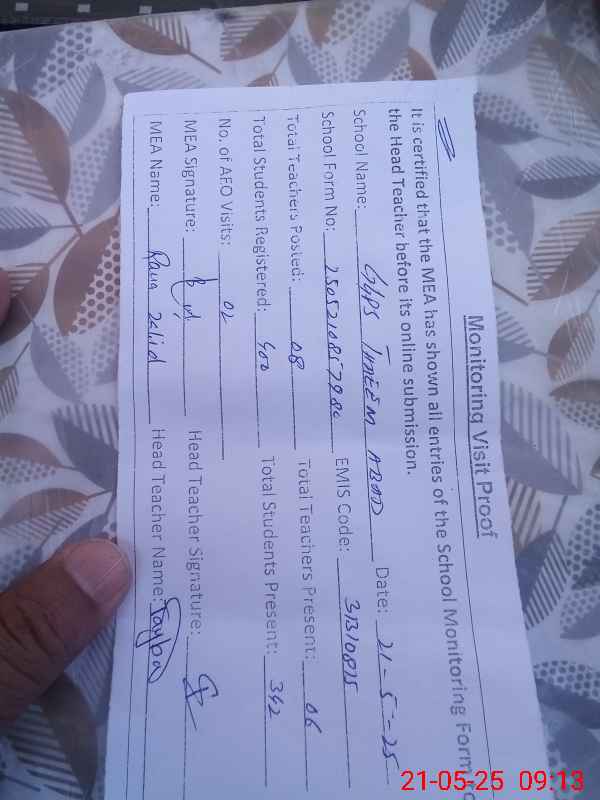 Monitoring Visit Proof
It is certified that the MEA has shown all entries of the School Monitoring Form to
the Head Teacher before its online submission.
School Name: GHPS TAREEM ABAD Date: 21-5-25
School Form No: EMIS Code: 31310825
Total Teachers Posted: 08 Total Teachers Present: 06
Total Students Registered: 400 Total Students Present: 342
No. of AFO Visits: 02
MEA Signature: Head Teacher Signature:
MEA Name: Rana Head Teacher Name: Tayba
21-05-25 09:13